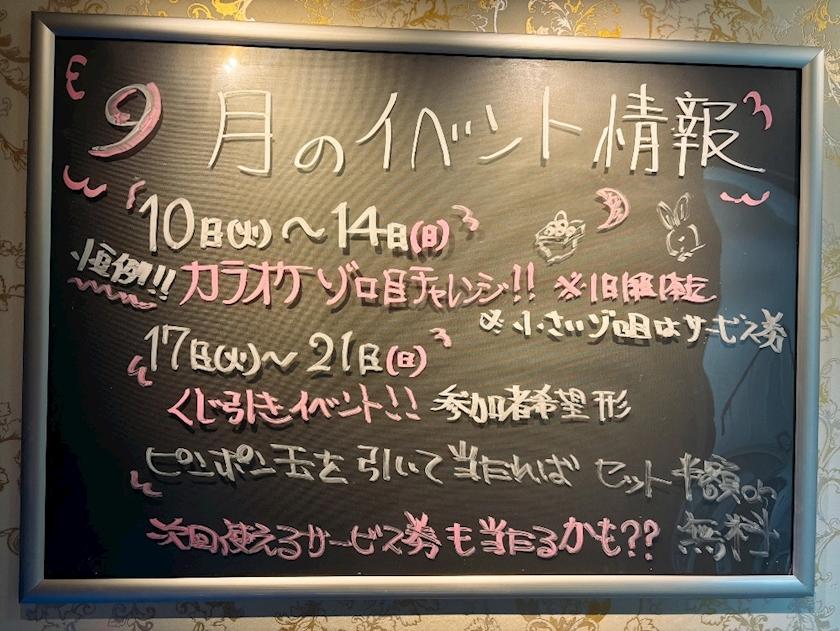 9月のイベント情報
10日(火)～14日(日)
恒例!! カラオケゾロ目チャレンジ!! ※1日1回限定
※小さいゾロ目はサービス券
17日(火)～21日(日)
くじ引きイベント!! 参加者希望形
ピンポン玉を引いて当たれば セット半額or
次回使えるサービス券も当たるかも?? 無料